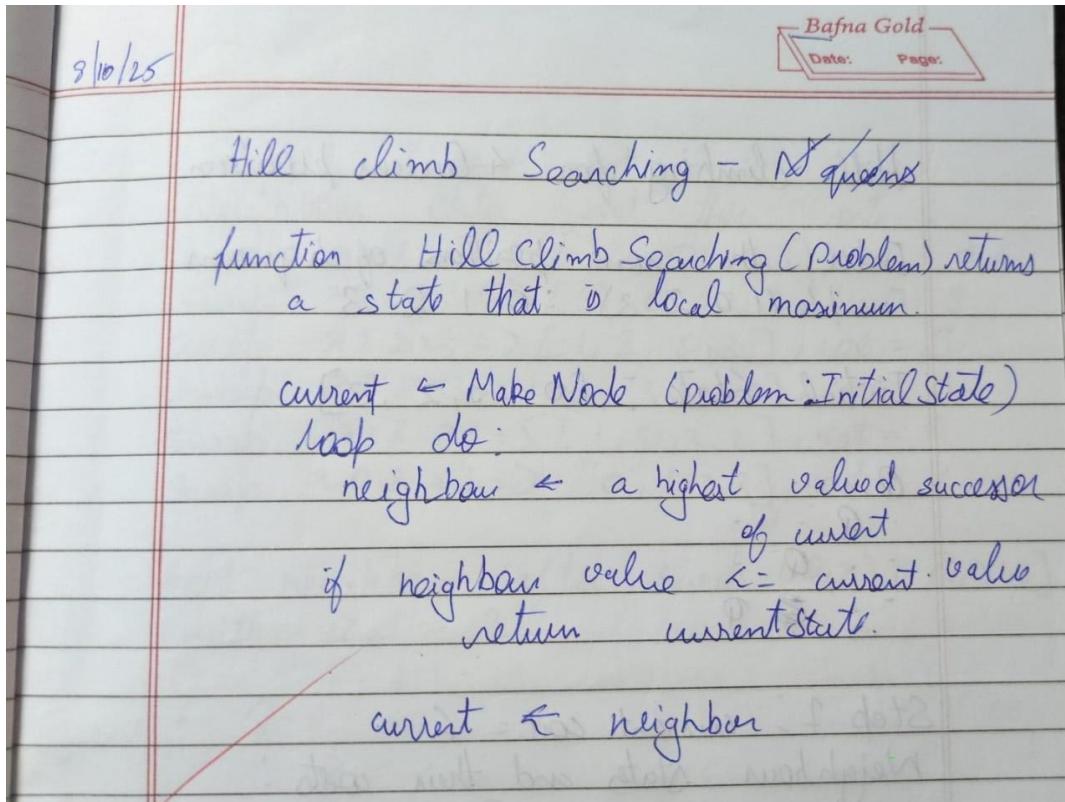 Bafna Gold
Date: Page:
8/10/25
Hill climb Searching - N queens
function Hill Climb Searching (Problem) returns
a state that is local maximum.
current ← Make Node (problem.Initial State)
loop do:
neighbour ← a highest valued successor
of current
if neighbour value <= current.value
return current State.
current ← neighbor